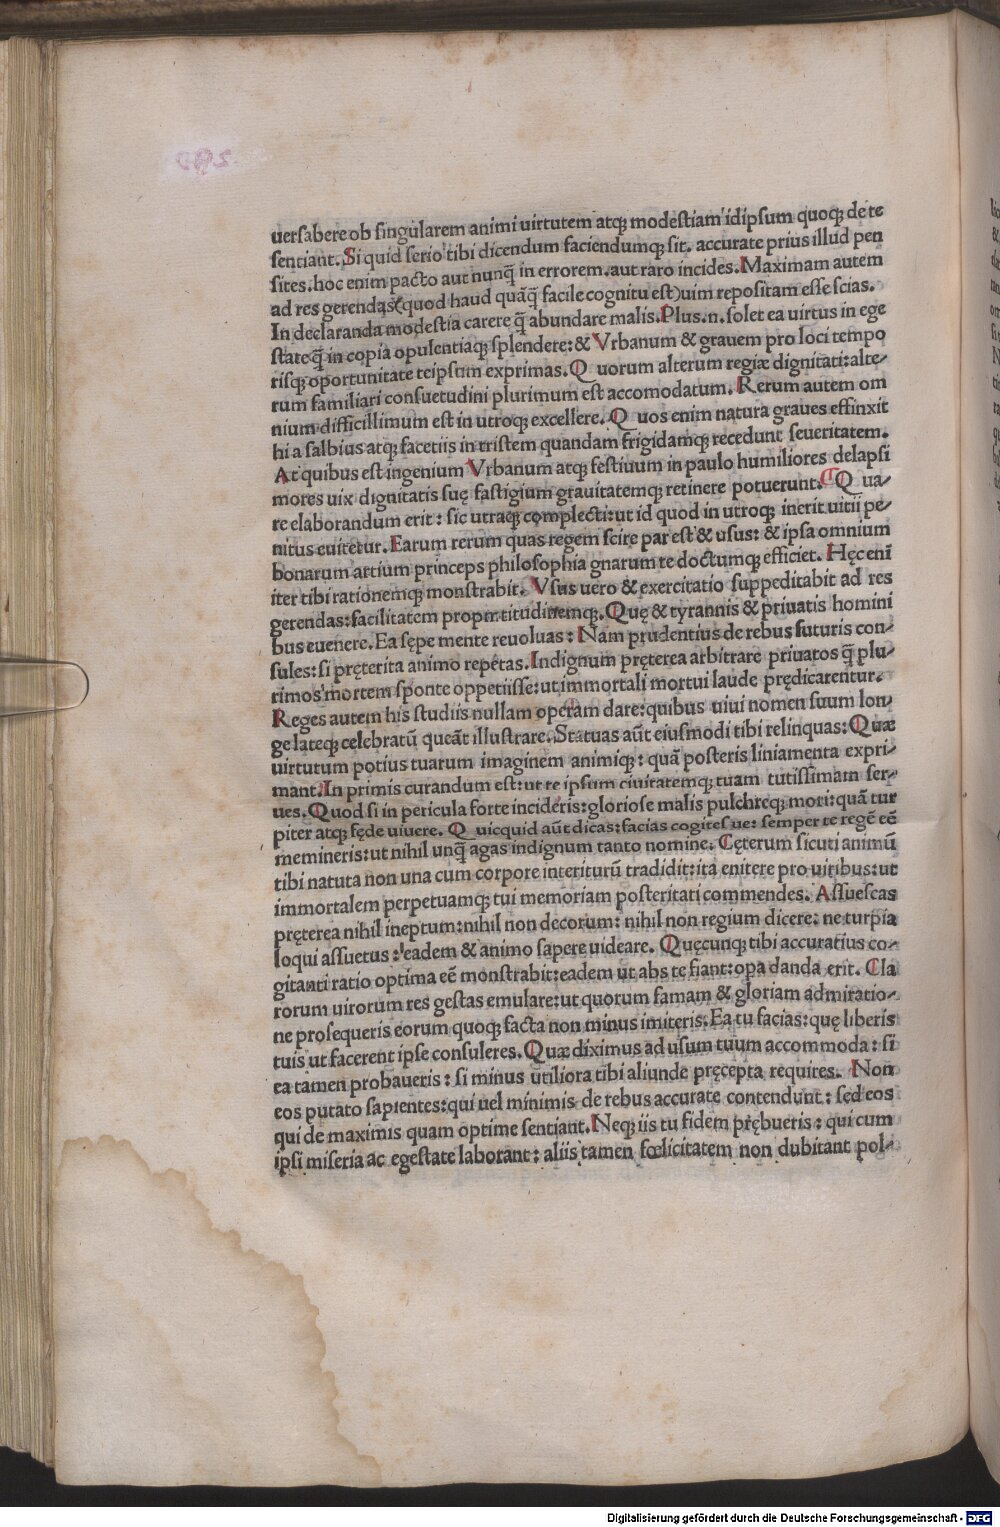 uersabere ob singularem animi uirtutem atqꝫ modestiam idipsum quoqꝫ de te
sentiant. Si quid serio tibi dicendum faciendumqꝫ sit. accurate prius illud pen
sites. hoc enim pacto aut nunq̃ in errorem. aut raro incides. Maximam autem
ad res gerendas (quod haud quãq̃ facile cognitu est) uim repositam esse scias.
In declaranda modestia carere q̃ abundare malis. Plus .n. solet ea uirtus in ege
state q̃ in copia opulentiaqꝫ splendere: & Vrbanum & grauem pro loci tempo
risqꝫ oportunitate teipsum exprimas. Q uorum alterum regiæ dignitati: alte-
rum familiari consuetudini plurimum est accomodatum. Rerum autem om
nium difficillimum est in utroqꝫ excellere. Q uos enim natura graues effinxit
hi a salbius atqꝫ facetiis in tristem quandam frigidamqꝫ recedunt seueritatem.
At quibus est ingenium Vrbanum atqꝫ festiuum in paulo humiliores delapsi
mores uix dignitatis suę fastigium grauitatemqꝫ retinere potuerunt. Q ua-
re elaborandum erit: sic utraqꝫ complecti: ut id quod in utroqꝫ inerit uitii pe-
nitus euitetur. Earum rerum quas regem scire par est & usus: & ipsa omnium
bonarum artium princeps philosophia gnarum te doctumqꝫ efficiet. Hęc enĩ
iter tibi rationemqꝫ monstrabit. Vsus uero & exercitatio suppeditabit ad res
gerendas: facilitatem promtitudinemqꝫ. Quę & tyrannis & priuatis homini
bus euenere. Ea sępe mente reuoluas: Nam prudentius de rebus futuris con-
sules: si pręterita animo repetas. Indignum pręterea arbitrare priuatos q̃ plu-
rimos mortem sponte oppetiisse: ut immortali mortui laude prędicarentur.
Reges autem his studiis nullam operam dare: quibus uiui nomen suum lon-
ge lateqꝫ celebratũ queãt illustrare. Statuas aũt eiusmodi tibi relinquas: Quæ
uirtutum potius tuarum imaginem animiqꝫ: quã posteris liniamenta expri-
mant. In primis curandum est: ut te ipsum ciuitatemqꝫ tuam tutissimam ser-
ues. Quod si in pericula forte incideris: gloriose malis pulchreqꝫ mori: quã tur
piter atqꝫ fęde uiuere. Q uicquid aũt dicas: facias cogites ue: semper te regẽ eẽ
memineris: ut nihil unq̃ agas indignum tanto nomine. Cęterum sicuti animũ
tibi natuta non una cum corpore interiturũ tradidit: ita enitere pro uiribus: ut
immortalem perpetuamqꝫ tui memoriam posteritati commendes. Assuescas
pręterea nihil ineptum: nihil non decorum: nihil non regium dicere: ne turpia
loqui assuetus: eadem & animo sapere uideare. Quęcunqꝫ tibi accuratius co-
gitanti ratio optima eẽ monstrabit: eadem ut abs te fiant: opa danda erit. Cla
rorum uirorum res gestas emulare: ut quorum famam & gloriam admiratio-
ne prosequeris eorum quoqꝫ facta non minus imiteris. Ea tu facias: quę liberis
tuis ut facerent ipse consuleres. Quæ diximus ad usum tuum accommoda: si
ea tamen probaueris: si minus utiliora tibi aliunde pręcepta requires. Non
eos putato sapientes: qui uel minimis de rebus accurate contendunt: sed eos
qui de maximis quam optime sentiant. Neqꝫ iis tu fidem prębueris: qui cum
ipsi miseria ac egestate laborant: aliis tamen fœlicitatem non dubitant pol-
Digitalisierung gefördert durch die Deutsche Forschungsgemeinschaft - DFG